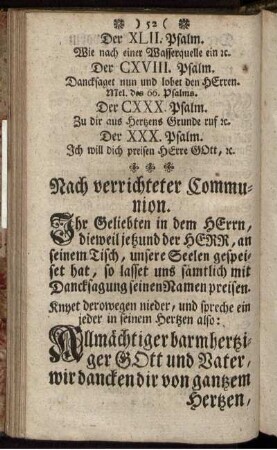 ) 52 (
Der XLII. Psalm.
Wie nach einer Wasserquelle ein ꝛc.
Der CXVIII. Psalm.
Dancksaget nun und lobet den HErren.
Mel. des 66. Psalms.
Der CXXX. Psalm.
Zu dir aus Hertzens Grunde ruf ꝛc.
Der XXX. Psalm.
Ich will dich preisen HErre GOtt, ꝛc.
Nach verrichteter Commu-
nion.
Ihr Geliebten in dem HErrn,
dieweil jetzund der HERR, an
seinem Tisch, unsere Seelen gespei-
set hat, so lasset uns sämtlich mit
Dancksagung seinen Namen preisen.
Knyet derowegen nieder, und spreche ein
jeder in seinem Hertzen also:
Allmächtiger barmhertzi-
ger GOtt und Vater,
wir dancken dir von gantzem
Hertzen,